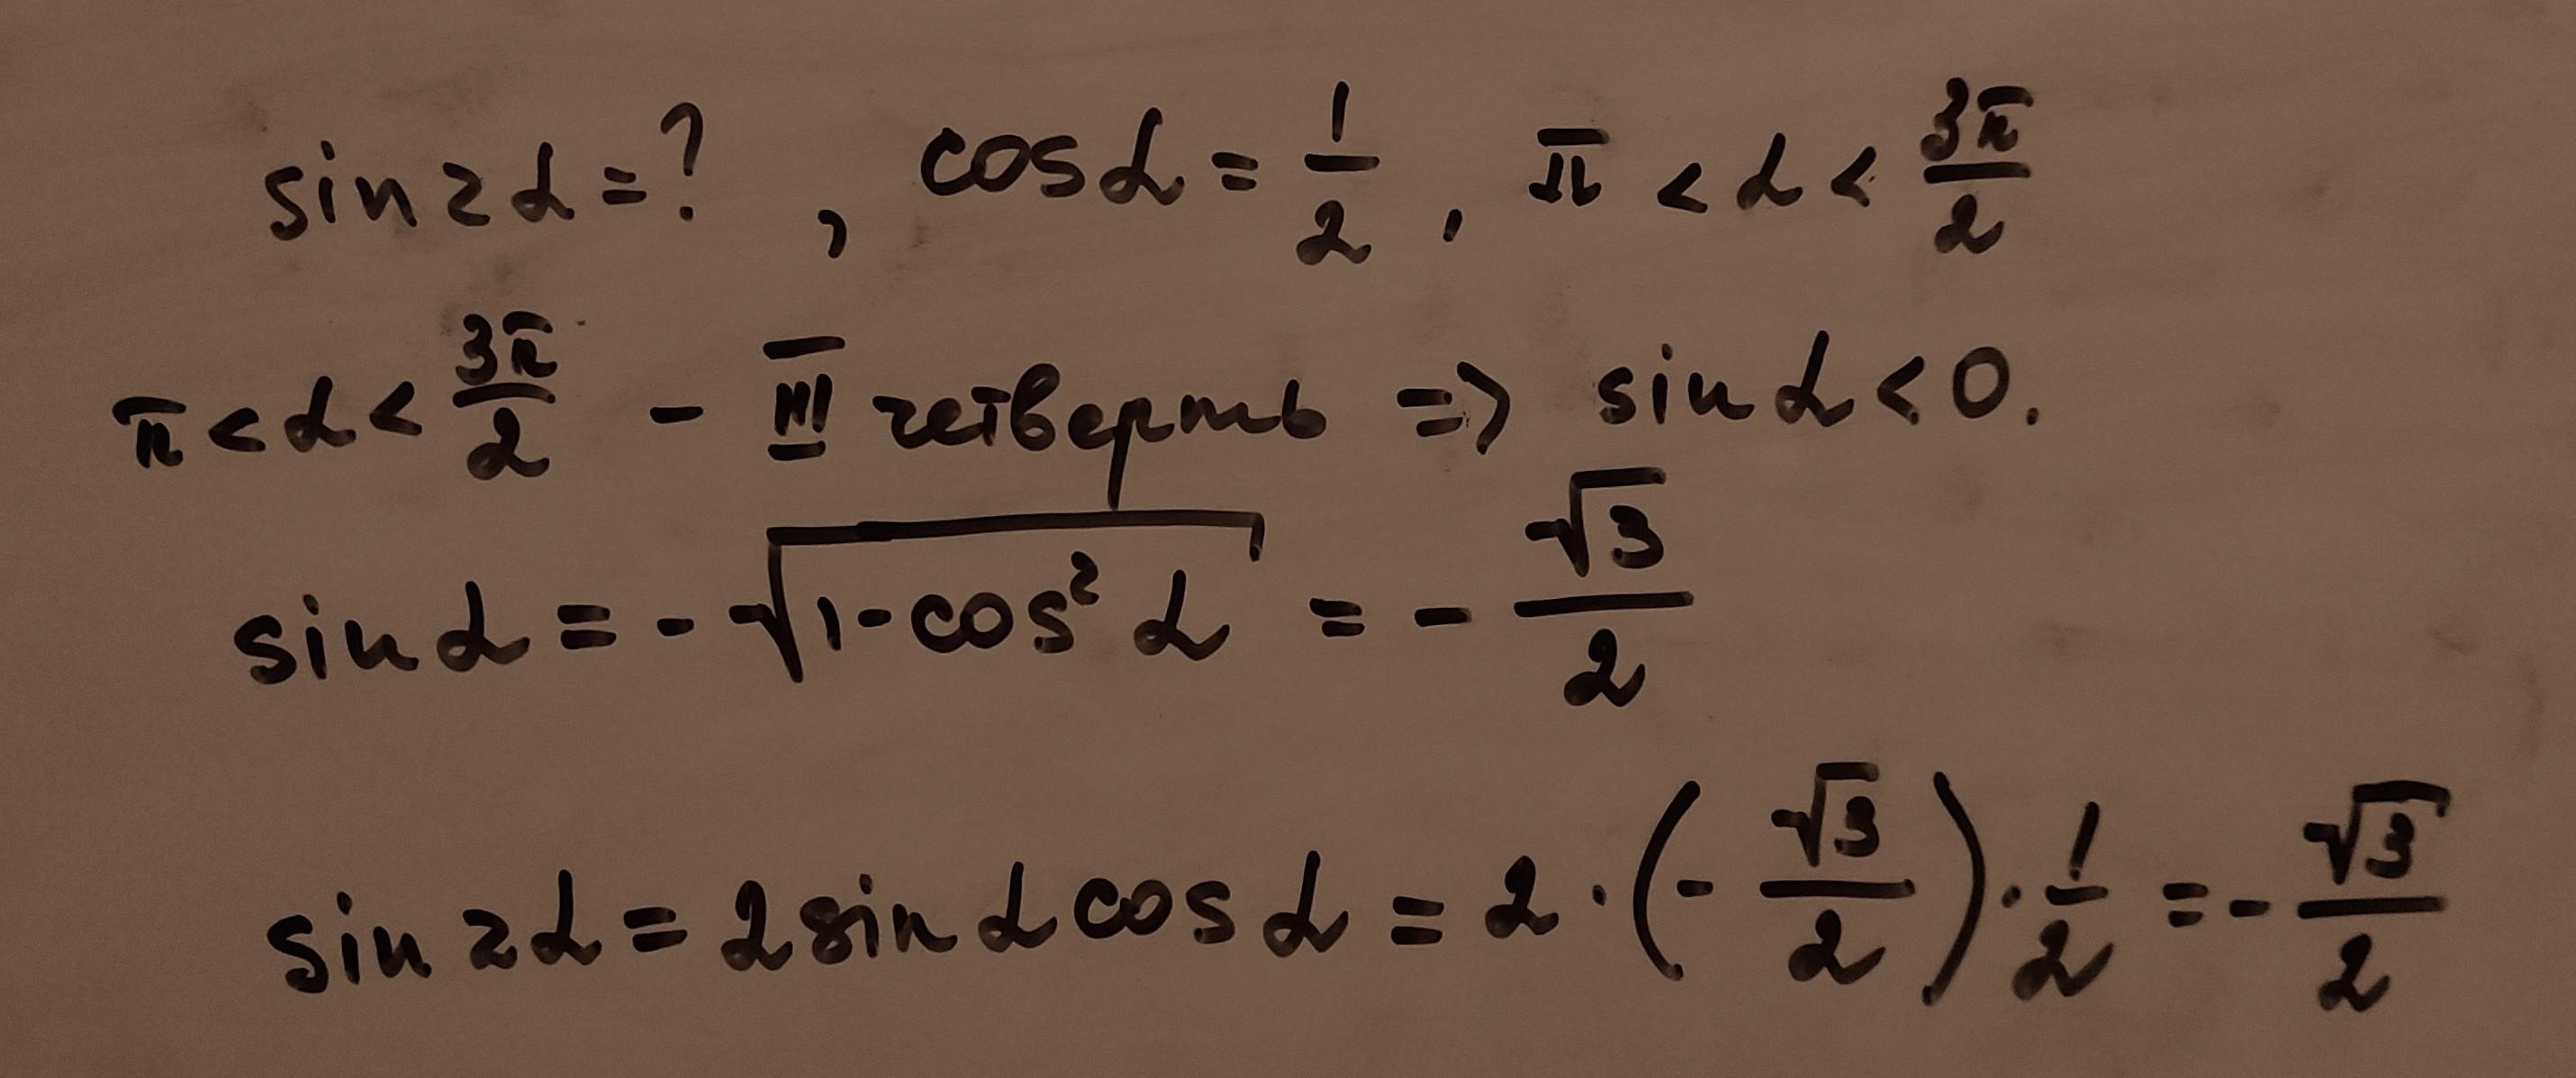 sin 2α = ?, cos α = 1/2, π < α < 3π/2
π < α < 3π/2 - III четверть => sin α < 0.
sin α = - √(1 - cos² α) = - √3/2
sin 2α = 2 sin α cos α = 2 · (- √3/2) · 1/2 = - √3/2